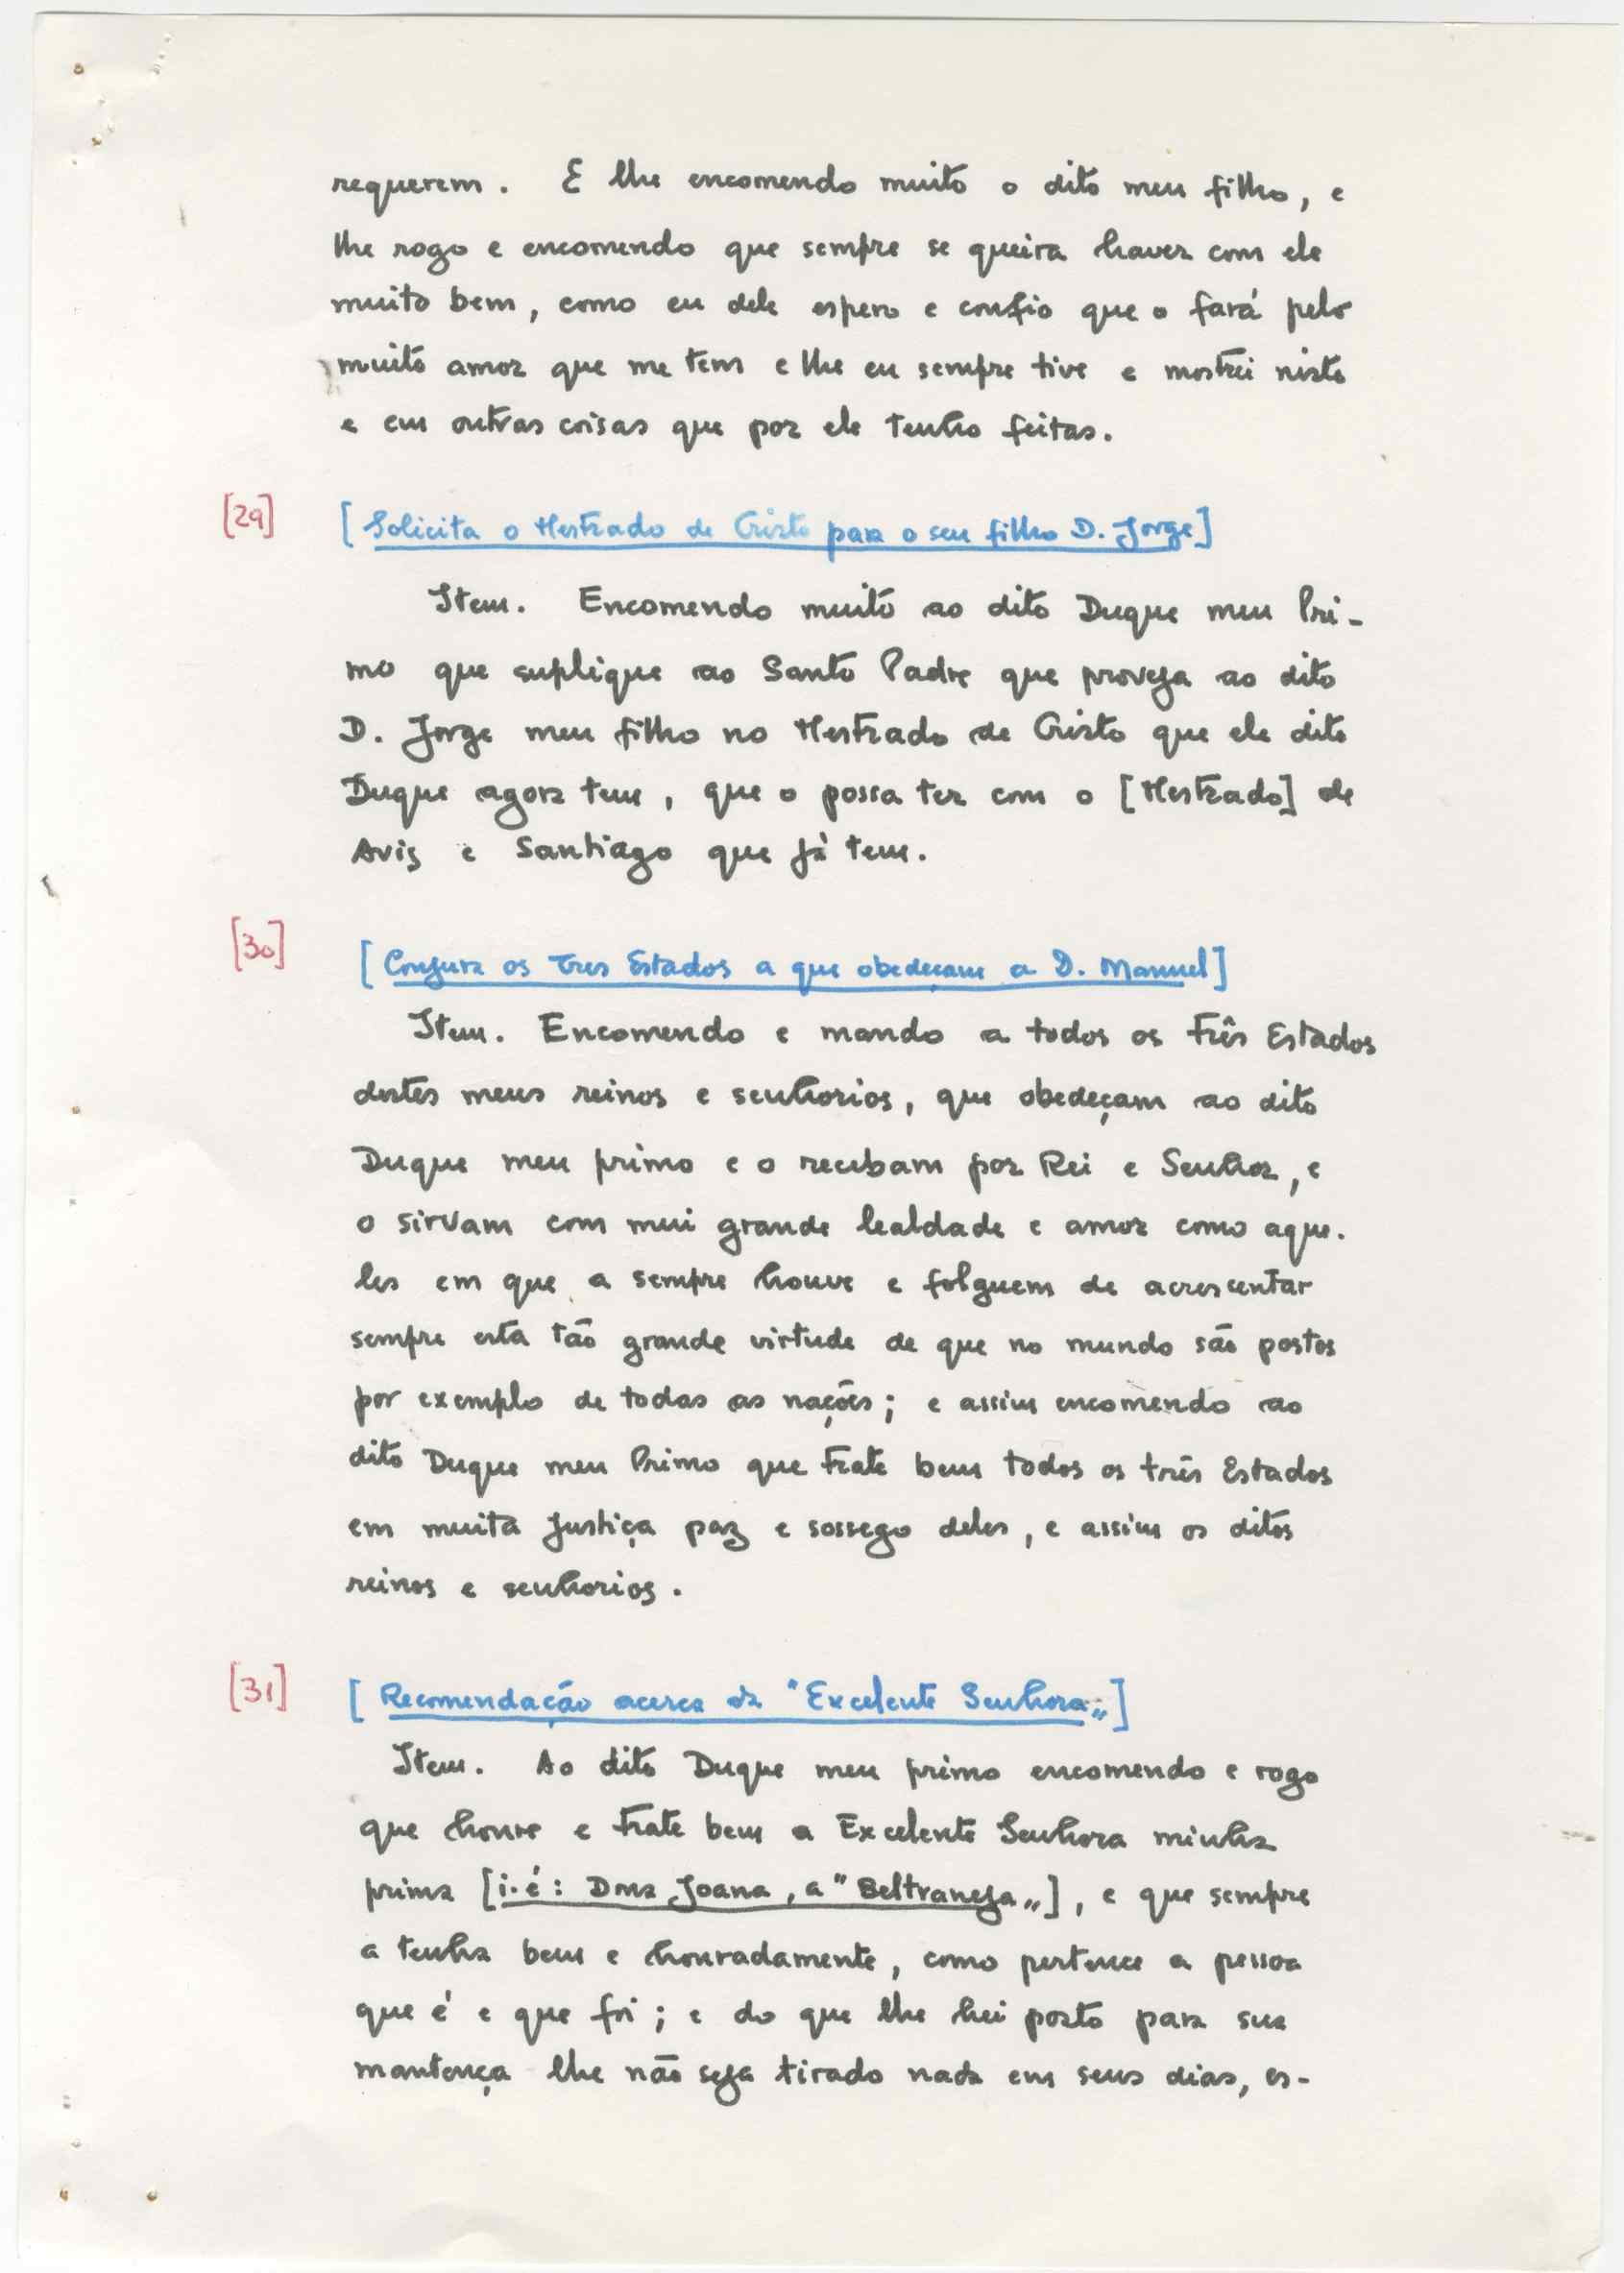 requerem. E lhe encomendo muito o dito meu filho, e
lhe rogo e encomendo que sempre se queira haver com ele
muito bem, como eu dele espero e confio que o fará pelo
muito amor que me tem e lhe eu sempre tive e mostrei nisto
e em outras coisas que por ele tenho feitas.
[29] [Solicita o Mestrado de Cristo para o seu filho D. Jorge]
Item. Encomendo muito ao dito Duque meu Pri-
mo que suplique ao Santo Padre que proveja ao dito
D. Jorge meu filho no Mestrado de Cristo que ele dito
Duque agora tem, que o possa ter com o [Mestrado] de
Avis e Santiago que já tem.
[30] [Conjura os Tres Estados a que obedeçam a D. Manuel]
Item. Encomendo e mando a todos os três Estados
destes meus reinos e senhorios, que obedeçam ao dito
Duque meu primo e o recebam por Rei e Senhor, e
o sirvam com mui grande lealdade e amor como aque-
les em que a sempre houve e folguem de acrescentar
sempre esta tão grande virtude de que no mundo são postos
por exemplo de todas as nações; e assim encomendo ao
dito Duque meu Primo que trate bem todos os três Estados
em muita justiça paz e sossego deles, e assim os ditos
reinos e senhorios.
[31] [Recomendação acerca da "Excelente Senhora"]
Item. Ao dito Duque meu primo encomendo e rogo
que honre e trate bem a Excelente Senhora minha
prima [i.é: Dna Joana, a "Beltraneja"], e que sempre
a tenha bem e honradamente, como pertence a pessoa
que é e que foi; e do que lhe hei posto para sua
mantença lhe não seja tirado nada em seus dias, es-